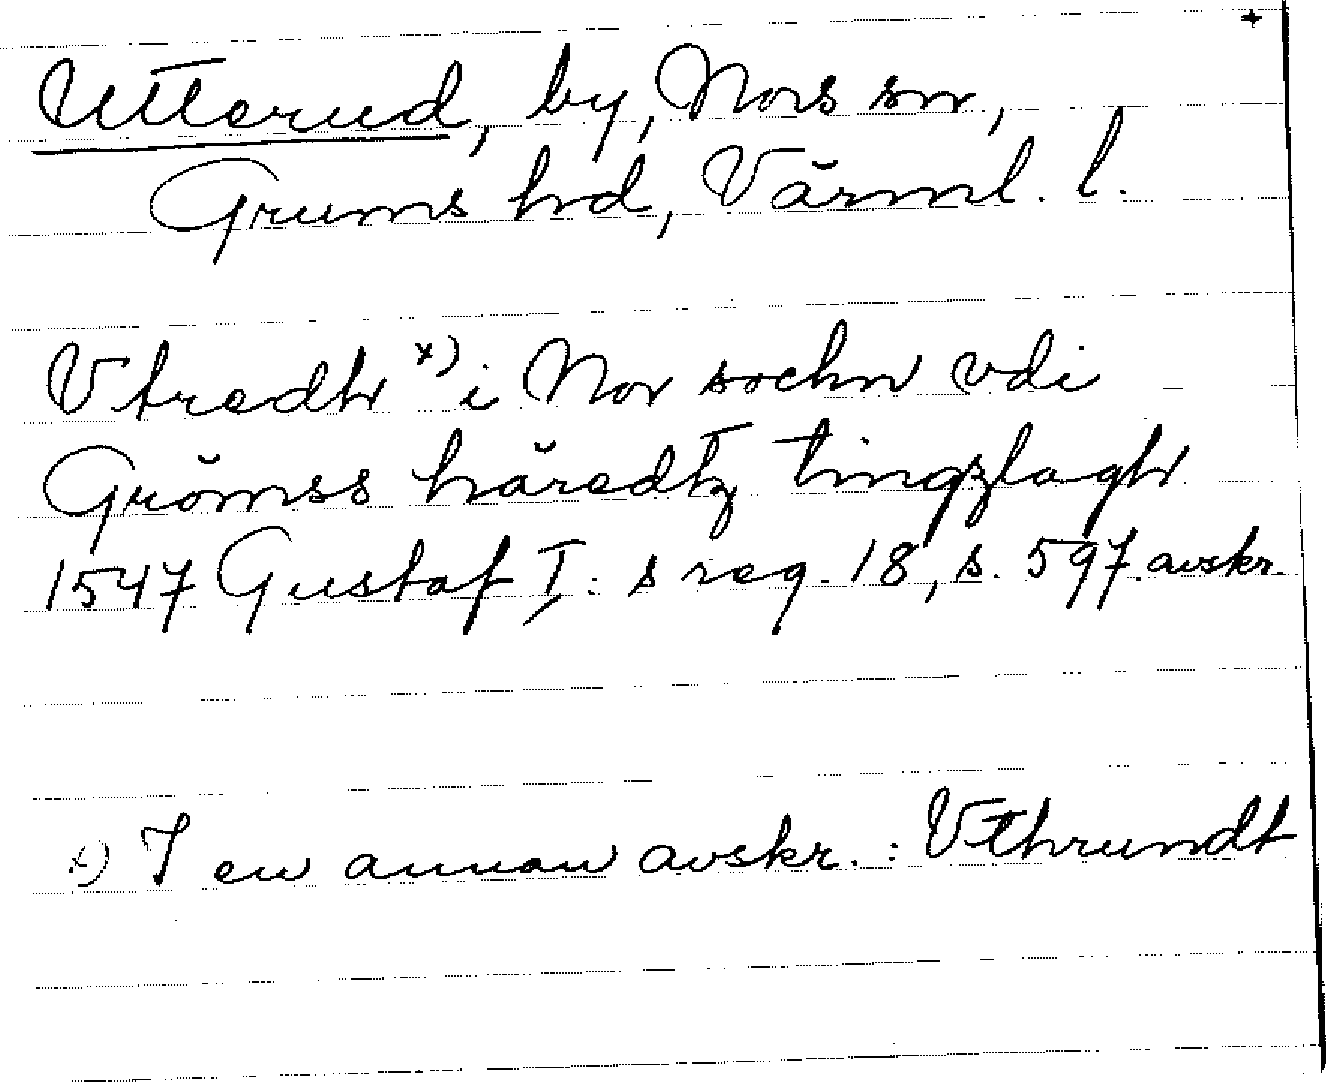 +
Utterud, by, Nors sn,
Grums hd, Värml. l.
Vtredh x) i Nor sochn vdi
Grömss häredtz tingzlagh
1547 Gustaf I:s reg. 18, s. 597 avskr.
x) I en annan avskr.: Vthrundt